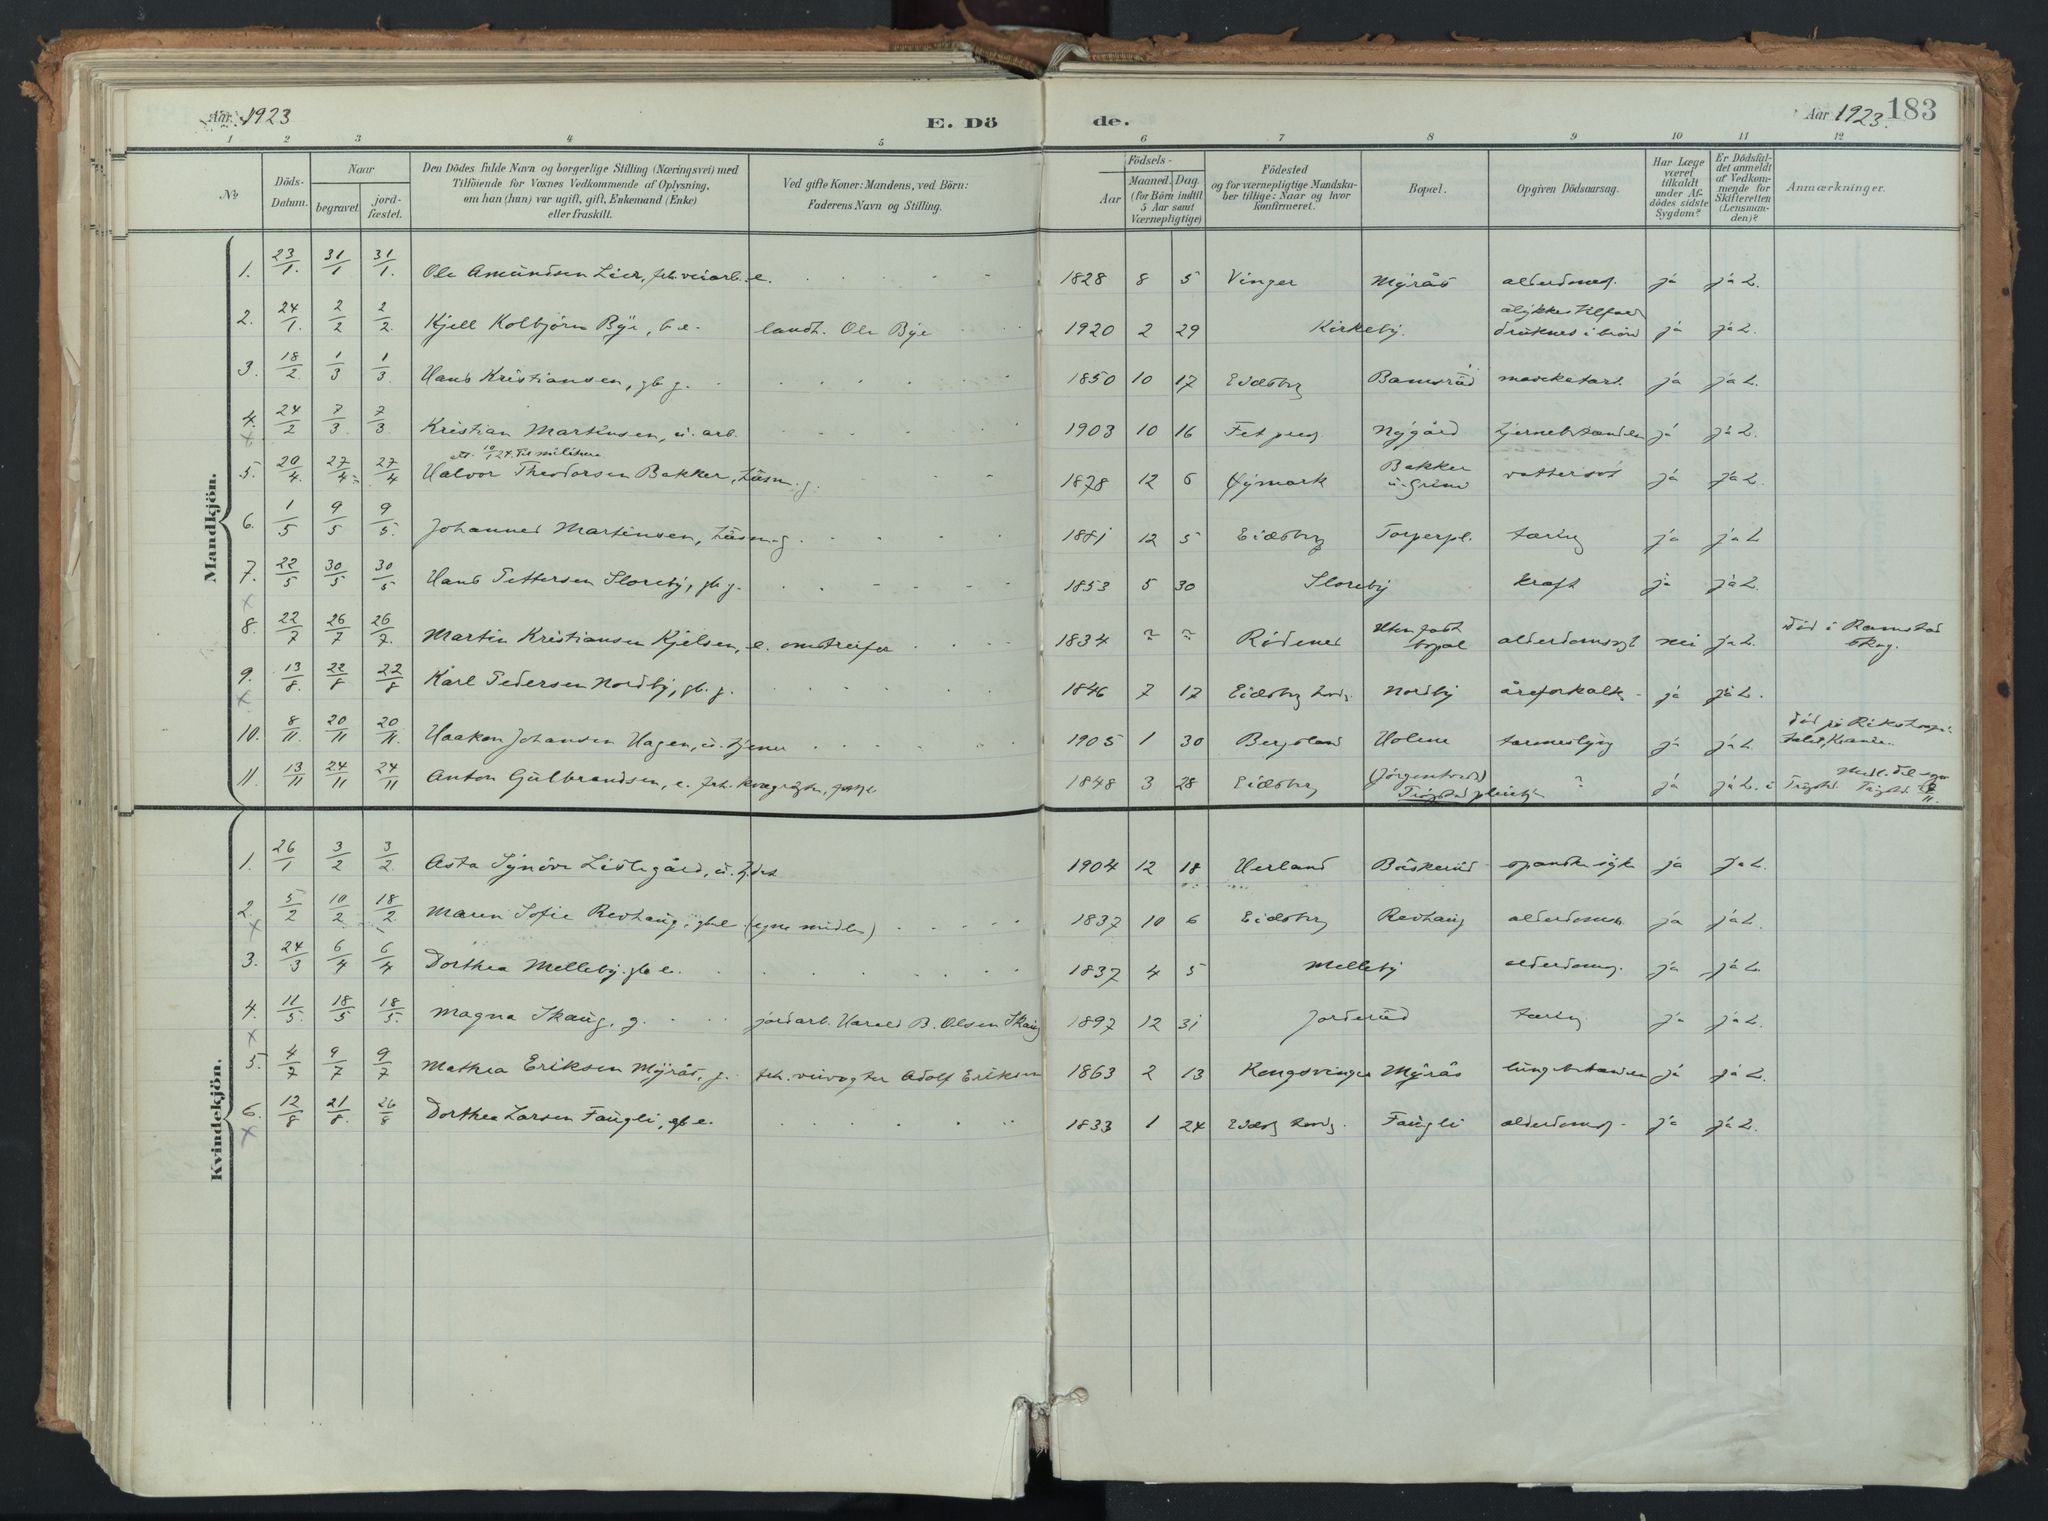 Aar 1923
E. Dö
de.
Aar 1923.
183
1 2 3 4 5 6 7 8 9 10 11 12
No
Döds-Datum.
Naar
begravet.
jord-fæstet.
Den Dödes fulde Navn og borgerlige Stilling (Næringsvei) med
Tilföiende for Voxnes Vedkommende af Oplysning,
om han (hun) var ugift, gift, Enkemand (Enke)
eller fraskilt.
Ved gifte Koner: Mandens, ved Börn:
Faderens Navn og Stilling.
Födsels-
Aar
Maaned. Dag
(for Börn indtil
5 Aar samt
Værnepligtige)
Födested
og for værnepligtige Mandska-
ber tillige: Naar og hvor
konfirmeret.
Bopæl.
Opgiven Dödsaarsag.
Har Læge
været
tilkaldt
under Af-
dödes sidste
Sygdom?
Er Dödsfal-
det anmeldt
af Vedkom-
mende for
Skifteretten
(Lensman-
den)?
Anmærkninger.
Mandkjön.
1. 23/1. 31/1 31/1. Ole Amundsen Lier, frh. veiarb. e. 1828 8 5 Vinger Myrås alderdoms. ja ja L.
2. 24/1. 2/2 2/2. Kjell Kolbjörn Bye, b e. landh. Ole Bye 1920 2 29 Kirkeby. ulykkestilfæld druknet i brönd ja ja L.
3. 18/2. 1/3 1/3. Hans Kristiansen, gb g. 1850 10 17 Eidsberg Bamsrud ja ja L.
4. 24/2 7/3. 7/3. Kristian Martinsen, u. arb. 1903 10 16 Fet Nygård hjernebetænd ja ja L.
att. 10/1 24. til militære
5. 20/4. 27/4 27/4 Halvor Theodorsen Bakker, husm. g. 1878 12 6 Öymark Bakker u. Grini vattersot ja ja L.
6. 1/5 9/5 9/5. Johannes Martinsen, husm. g. 1881 12 5 Eidsberg Torperpl. tæring ja ja L
7. 22/5 30/5 30/5 Hans Pettersen Sloreby, gb g. 1853 5 30 Sloreby kræft ja ja L.
8. 22/7 26/7 26/7. Martin Kristiansen Kjelsen, e. omstreifer 1834 ? ? Rödenes Uten fast bopæl alderdomssygd nei ja L. död i Ramstad skog.
9. 13/8. 22/8 22/8 Karl Pedersen Nordby, gb. g. 1846 7 17 Eidsberg Nordby åreforkalk. ja ja L.
10. 8/11. 20/11 20/11. Haakon Johansen Hagen, u. tjener 1905 1 30 Holene tarmeslyng ja ja L. död på Rikshospitalet, Krania.
11. 13/11 24/11 24/11 Anton Gulbrandsen, e. 1848 3 28 Eidsberg Trögstad pleiehj. ? ja ja L. i Trögstad
Kvindekjön.
1. 26/1 3/2 3/2. Asta Synöve Lislegård, u. 1904 12 18 Båskerud spanske syke ja ja L.
2. 5/2 10/2 18/2. Maren Sofie Revhaug, gbe (egne midler) 1837 10 6 Eidsberg Revhaug alderdoms ja ja L.
3. 24/3 6/4 6/4 Dorthea Melleby. gb e. 1837 4 5 Melleby alderdoms. ja ja L.
4. 11/5. 18/5 18/5. Magna Skaug, g. jordarb. Harald B. Olsen Skaug 1897 12 31 Jorderud tæring ja ja L.
5. 4/7 9/7 9/7 Mathea Eriksen Myrås, g. frh. veivogter Adolf Eriksen 1863 2 13 Kongsvinger Myrås lungebetænden ja ja L.
6. 12/8 21/8. 26/8 Dorthea Larsen Faugli, gb e. 1833 1 24 Faugli alderdoms. ja ja L.